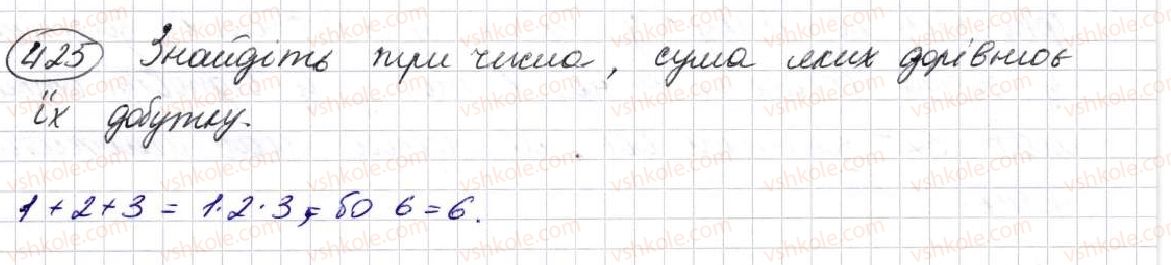 425 Знайдіть три числа, сума яких дорівнює
їх добутку.
1 + 2 + 3 = 1 · 2 · 3, бо 6 = 6.